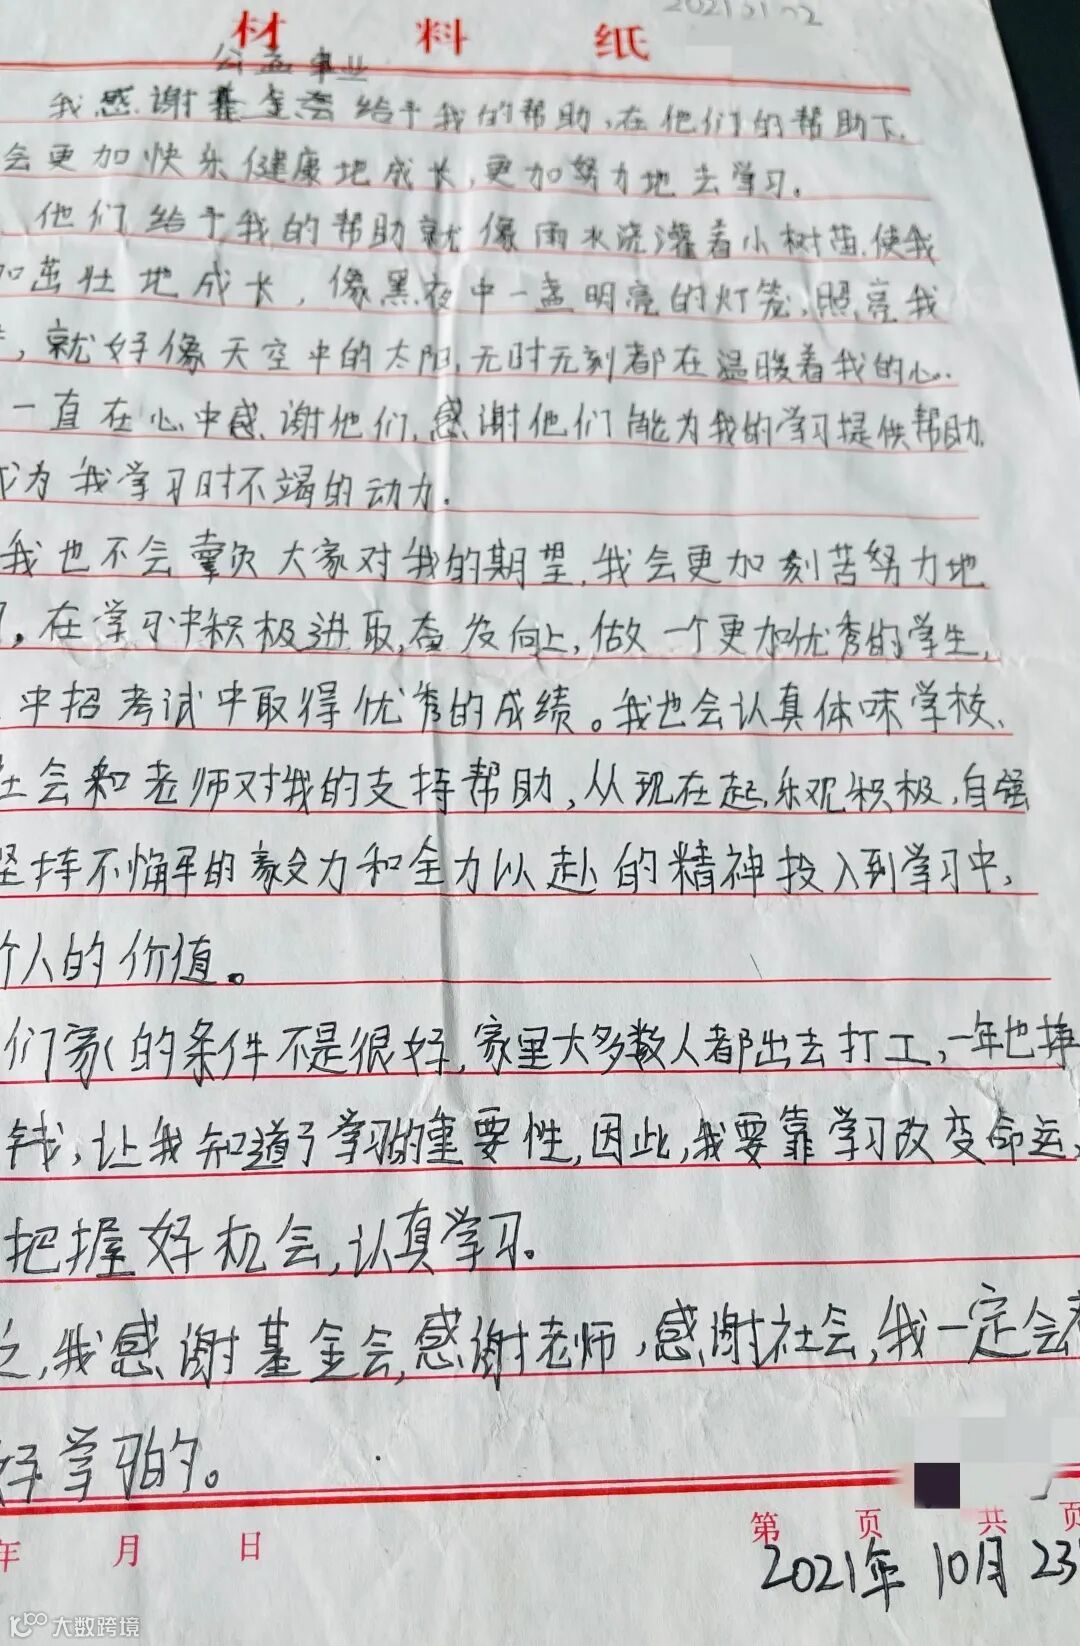 20212122
材料纸
公益事业
我感谢基金会给予我的帮助,在他们的帮助下,
会更加快乐健康地成长,更加努力地去学习.
他们给予我的帮助就像雨水浇灌着小树苗,使我
加茁壮地成长,像黑夜中一盏明亮的灯笼,照亮我
,就好像天空中的太阳,无时无刻都在温暖着我的心.
一直在心中感谢他们,感谢他们能为我的学习提供帮助,
成为我学习时不竭的动力.
我也不会辜负大家对我的期望,我会更加刻苦努力地
习,在学习中积极进取,奋发向上,做一个更加优秀的学生,
中招考试中取得优秀的成绩。我也会认真体味学校、
社会和老师对我的支持帮助,从现在起,乐观积极,自强
坚持不懈的毅力和全力以赴的精神投入到学习中,
个人的价值。
们家的条件不是很好,家里大多数人都出去打工,一年也挣
钱,让我知道了学习的重要性,因此,我要靠学习改变命运,
把握好机会,认真学习。
之,我感谢基金会,感谢老师,感谢社会,我一定会
好学习的。
年 月 日
第 页 共 页
2021年10月23
大数跨境